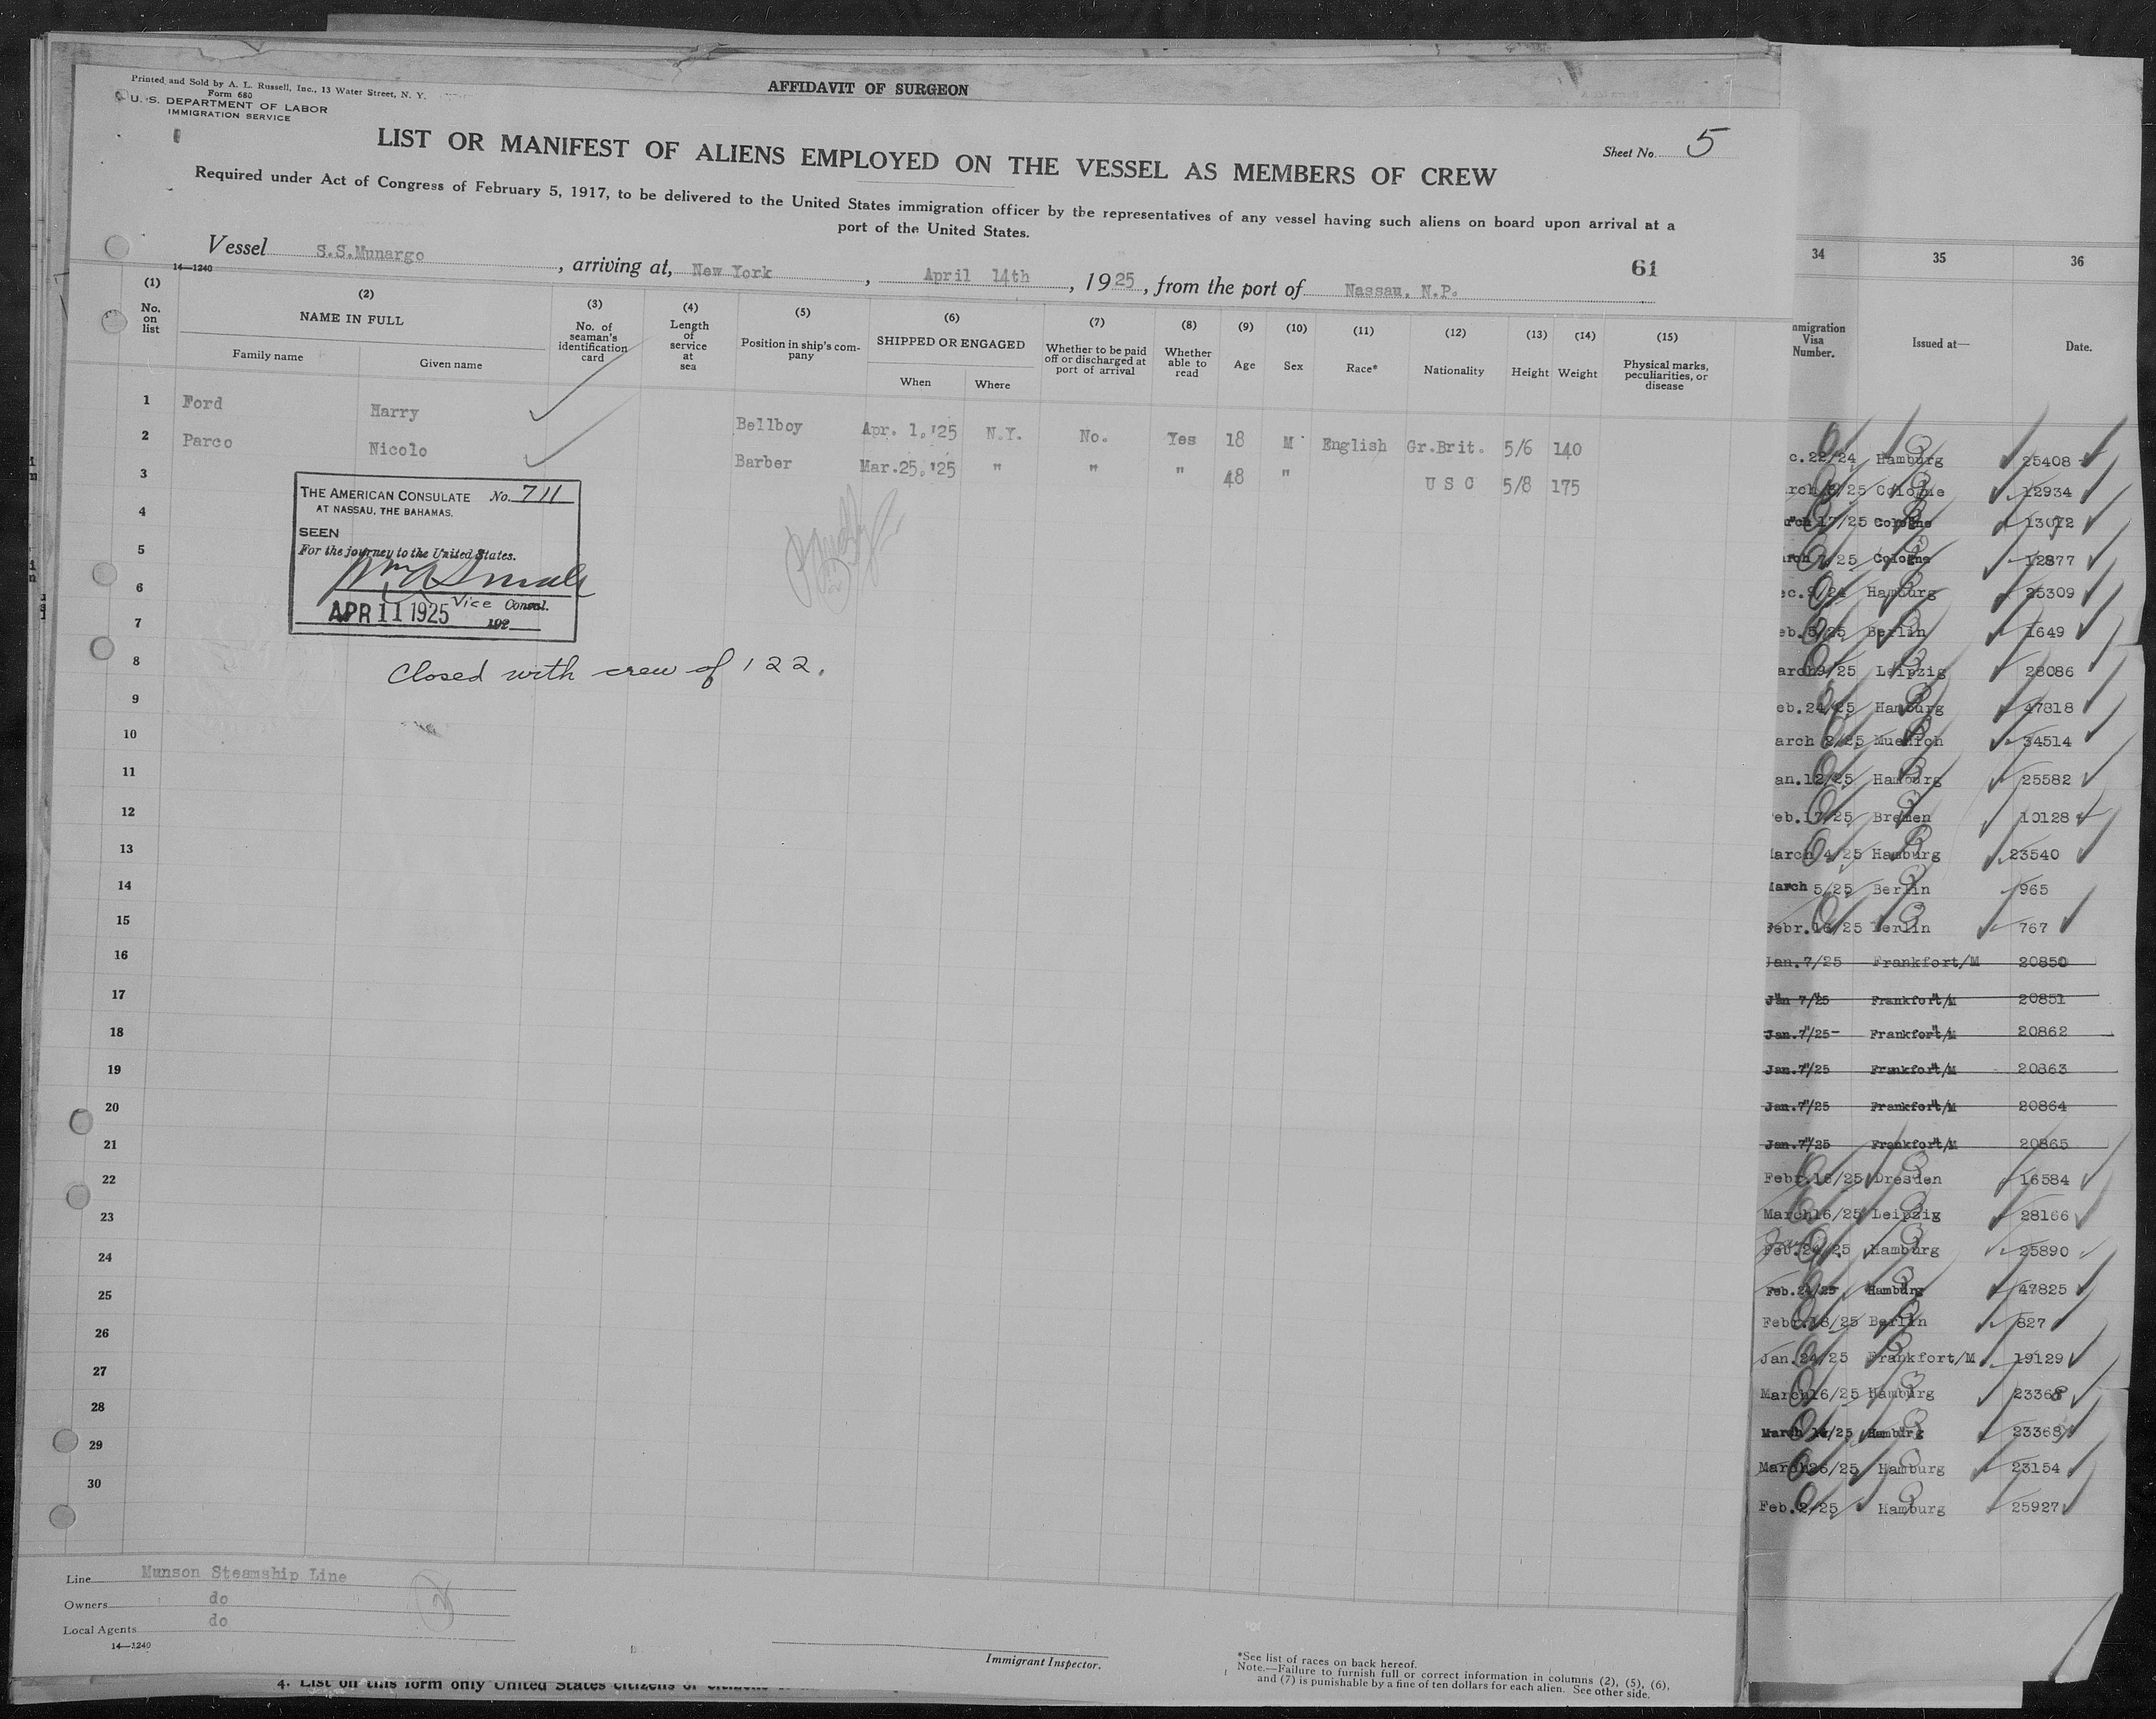 AFFIDAVIT OF SURGEON
Printed and Sold by A. L. Russell, Inc., 13 Water Street, N. Y.
Form 680
U. S. DEPARTMENT OF LABOR
IMMIGRATION SERVICE
Sheet No. 5
LIST OR MANIFEST OF ALIENS EMPLOYED ON THE VESSEL AS MEMBERS OF CREW
Required under Act of Congress of February 5, 1917, to be delivered to the United States immigration officer by the representatives of any vessel having such aliens on board upon arrival at a
port of the United States.
61
Vessel S.S.Munargo, arriving at, New York, April 14th, 1925, from the port of Nassau, N.P.
14—1240
(1) (2) (3) (4) (5) (6) (7) (8) (9) (10) (11) (12) (13) (14) (15)
No. on list
NAME IN FULL
Family name Given name
No. of seaman's identification card
Length of service at sea
Position in ship's company
SHIPPED OR ENGAGED
When Where
Whether to be paid off or discharged at port of arrival
Whether able to read
Age Sex Race* Nationality Height Weight
Physical marks, peculiarities, or disease
1 Ford Harry Bellboy Apr. 1,'25 N.Y. No. Yes 18 M English Gr.Brit. 5/6 140
2 Parco Nicolo Barber Mar.25,'25 " " " 48 " U S C 5/8 175
3
4
5
6
7
8
9
10
11
12
13
14
15
16
17
18
19
20
21
22
23
24
25
26
27
28
29
30
THE AMERICAN CONSULATE No. 711
AT NASSAU, THE BAHAMAS.
SEEN
For the journey to the United States.
Vice Consul.
APR 11 1925 192
Closed with crew of 122.
Line Munson Steamship Line
Owners do
Local Agents do
14—1240
Immigrant Inspector.
*See list of races on back hereof.
Note.—Failure to furnish full or correct information in columns (2), (5), (6),
and (7) is punishable by a fine of ten dollars for each alien. See other side.
4. List on this form only United States citizens or
34 35 36
mmigration Visa Number.
Issued at—
Date.
c.22/24 Hamburg 25408
/25 Cologne 12934
17/25 Cologne
/25 Cologne 12877
Hamburg 25309
eb.5/25 Berlin 1649
arch9/25 Leipzig 28086
eb.24/25 Hamburg 47818
arch 2/25 Muenich 34514
an.12/25 Hamburg 25582
eb.17/25 Bremen 10128
arch 4/25 Hamburg 23540
March 5/25 Berlin 965
Febr.16/25 Berlin 767
Jan.7/25 Frankfort/M 20850
Jan 7/25 Frankfort/M 20851
Jan.7/25 Frankfort/M 20862
Jan.7/25 Frankfort/M 20863
Jan.7/25 Frankfort/M 20864
Jan.7/25 Frankfort/M 20865
Febr.16/25 Dresden 16584
March16/25 Leipzig 28166
Feb.24/25 Hamburg 25890
Feb.24/25 Hamburg 47825
Febr.18/25 Berlin 827
Jan.24/25 Frankfort/M 19129
March16/25 Hamburg 23368
March /25 Hamburg 23368
March26/25 Hamburg 23154
Feb.2/25 Hamburg 25927